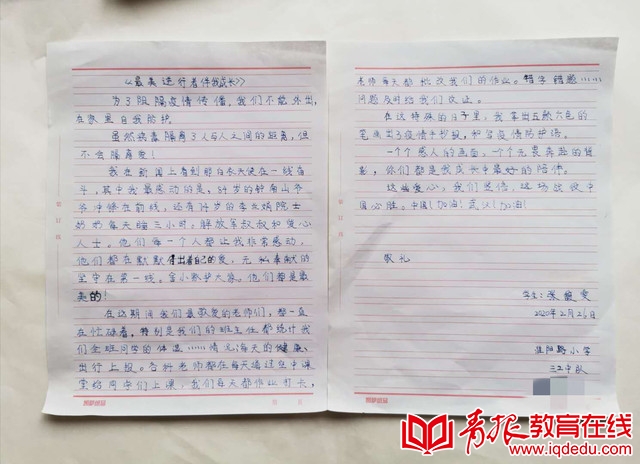 《最美逆行者伴我成长》
为了阻隔疫情传播，我们不能外出，
在家里自我防护。
虽然病毒隔离了人与人之间的距离，但
不会隔离爱！
我在新闻上看到那白衣天使在一线奋
斗，其中我最感动的是，84岁的钟南山爷
爷冲锋在前线，还有74岁的李兰娟院士
奶奶每天睡三小时；解放军叔叔和爱心
人士。他们每一个人都让我非常感动，
他们都在默默付出着自己的爱，无私奉献的
坚守在第一线。舍小家护大家。他们都是最
美的！
在这期间我们最敬爱的老师们，都一直
在忙碌着。特别是我们的班主任都统计我
们全班同学的体温……情况每天的健康、
出行上报。各科老师都在每天通过空中课
堂给同学们上课，我们每天都作业打卡，
老师每天都批改我们的作业。错字错题……
问题及时给我们改正。
在这特殊的日子里，我拿出五颜六色的
笔画出了疫情手抄报，和写疫情防护法。
一个个感人的画面，一个个无畏奔赴的背
影，你们都是我成长中最好的陪伴。
这场战役中
国必胜。中国！加油！武汉！加油！
敬礼
2020年2月26日
小学
中队
青报教育在线
www.iqdedu.com